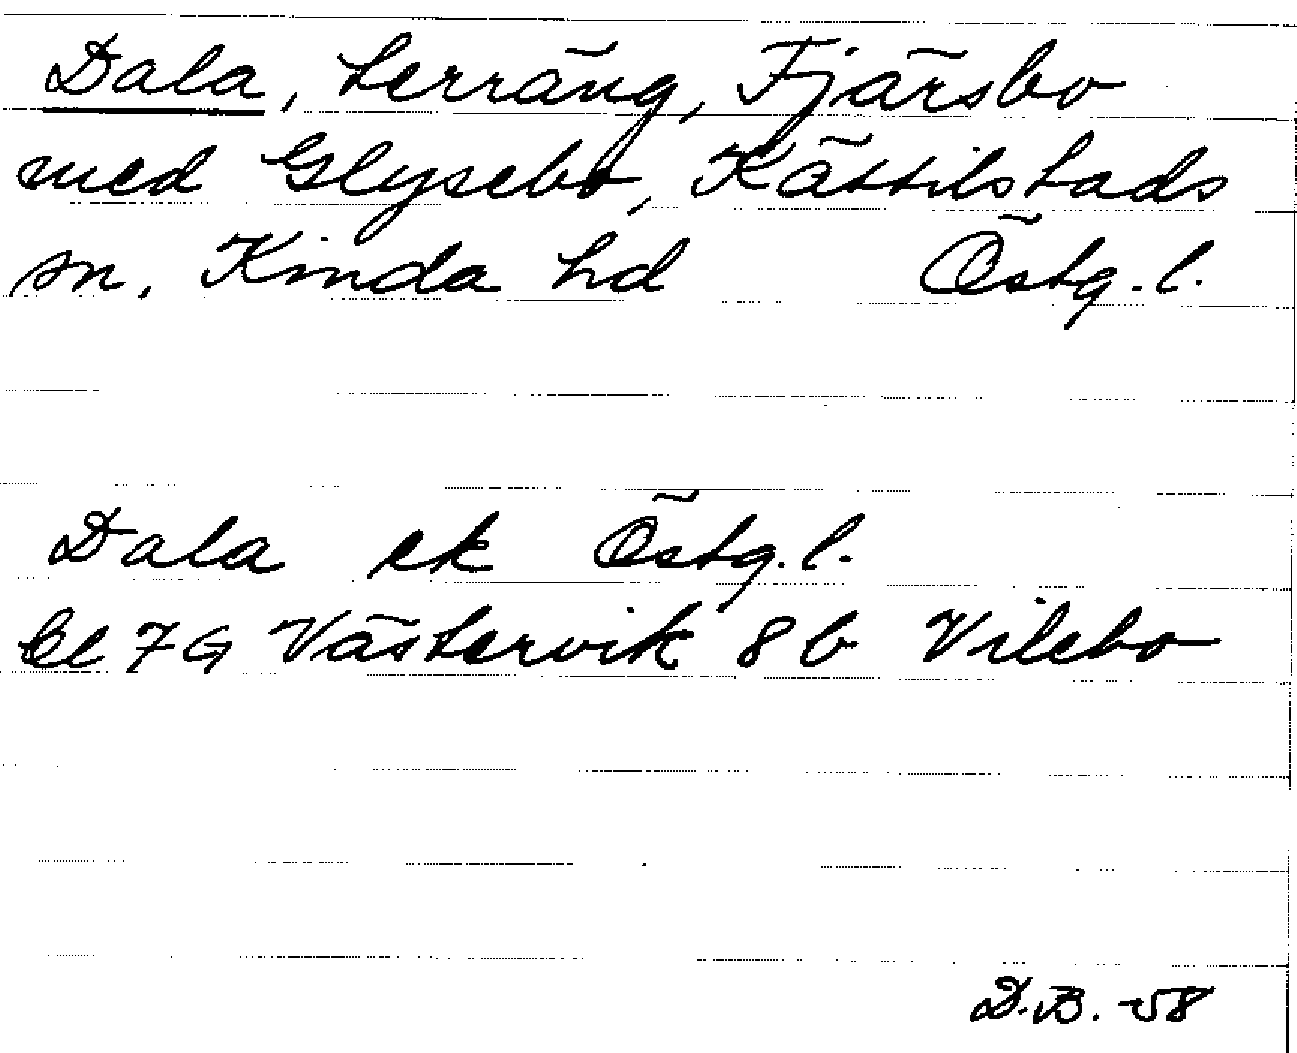 Dala, terräng, Fjärsbo
med Glysebo, Kättilstads
sn. Kinda hd Östg. l.
Dala ek Östg. l.
bl 7G Västervik 8b Vilebo
D.B. -58